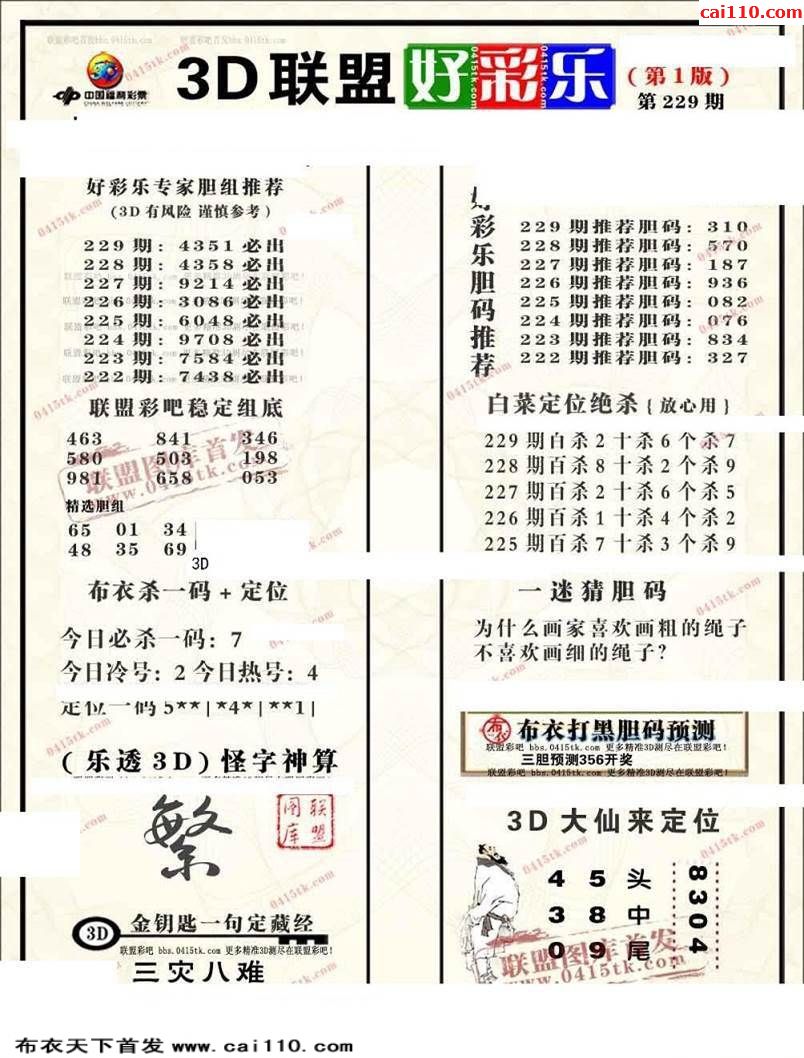 cai110.com
联盟彩吧首发bbs.0415tk.com
中国福利彩票
CHINA WELFARE LOTTERY
3D联盟好彩乐
0415tk.com
0415tk.com
0415tk.com
(第1版)
第229期
好彩乐专家胆组推荐
(3D有风险 谨慎参考)
229期: 4351必出
228期: 4358必出
227期: 9214必出
226期: 3086必出
225期: 6048必出
224期: 9708必出
223期: 7584必出
222期: 7438必出
联盟彩吧稳定组底
463 841 346
580 503 198
981 658 053
联盟图库首发
www.0415tk.com
精选胆组
65 01 34
48 35 69
3D
布衣杀一码+定位
今日必杀一码: 7
今日冷号: 2 今日热号: 4
定位一码 5**|*4*|**1|
(乐透3D)怪字神算
繁
联盟图库
3D 金钥匙一句定藏经
联盟彩吧 bbs.0415tk.com 更多精准3D测尽在联盟彩吧!
三灾八难
好彩乐胆码推荐
229期推荐胆码: 310
228期推荐胆码: 570
227期推荐胆码: 187
226期推荐胆码: 936
225期推荐胆码: 082
224期推荐胆码: 076
223期推荐胆码: 834
222期推荐胆码: 327
白菜定位绝杀{放心用}
229期百杀2十杀6个杀7
228期百杀8十杀2个杀9
227期百杀2十杀6个杀5
226期百杀1十杀4个杀2
225期百杀7十杀3个杀9
一迷猜胆码
为什么画家喜欢画粗的绳子
不喜欢画细的绳子?
布衣 布衣打黑胆码预测
联盟彩吧 bbs.0415tk.com 更多精准3D测尽在联盟彩吧!
三胆预测356开奖
联盟彩吧 bbs.0415tk.com 更多精准3D测尽在联盟彩吧!
3D大仙来定位
4 5 头
3 8 中
0 9 尾
8304
联盟图库首发
www.0415tk.com
布衣天下首发 www.cai110.com